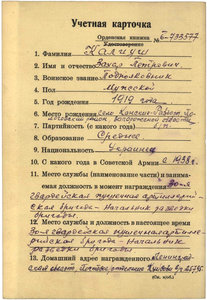 Учетная карточка
Орденская книжка № Б-738577
Удостоверение
1. Фамилия Калиуш
2. Имя и отчество Захар Петрович
3. Воинское звание Подполковник
4. Пол Мужской
5. Год рождения 1919 года
6. Место рождения село
область
7. Партийность (с какого года)
8. Образование Среднее
9. Национальность Украинец
10. С какого года в Советской Армии с 1938 г.
11. Место службы (наименование части) и занимаемая должность в момент награждения 30-я
гвардейская пушечная артиллерийская бригада - Начальник разведки
бригады
12. Место службы и должность в настоящее время
30я гвардейская пушечная артиллерийская бригада - Начальник
разведки бригады
13. Домашний адрес награжденного Ленинградская область